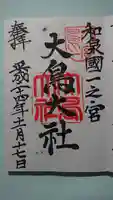 和泉國一之宮
大鳥大社
奉拝
平成二十四年十二月十七日